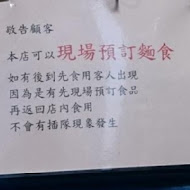 敬告顧客
本店可以現場預訂麵食
如有後到先食用客人出現
因為是有先現場預訂食品
再返回店內食用
不會有插隊現象發生